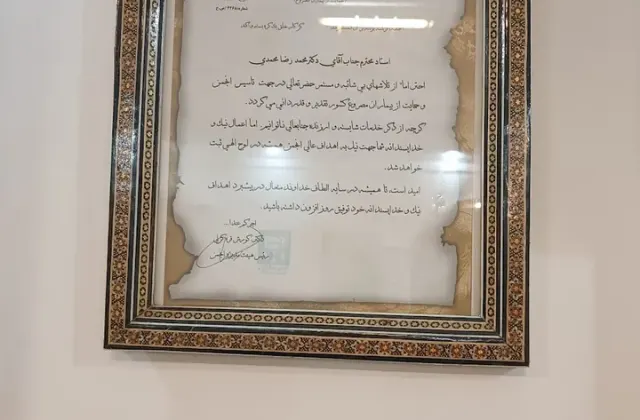 استاد محترم جناب آقای دکتر محمد رضا محمدی
احتراما از تلاشهای بی شائبه و مستمر حضرتعالی در جهت تأسیس انجمن
و حمایت از بیماران مصروع کشور تقدیر و قدردانی می گردد.
گرچه از ذکر خدمات شایسته و ارزنده جنابعالی ناتوانیم اما اعمال نیک و
خداپسندانه شما جهت نیل به اهداف عالی انجمن همیشه در لوح الهی ثبت
خواهد شد.
امید است تا همیشه در سایه الطاف خداوند متعال در پیشبرد اهداف
نیک و خداپسندانه خود توفیق روز افزون داشته باشید.
اجرکم عندا...